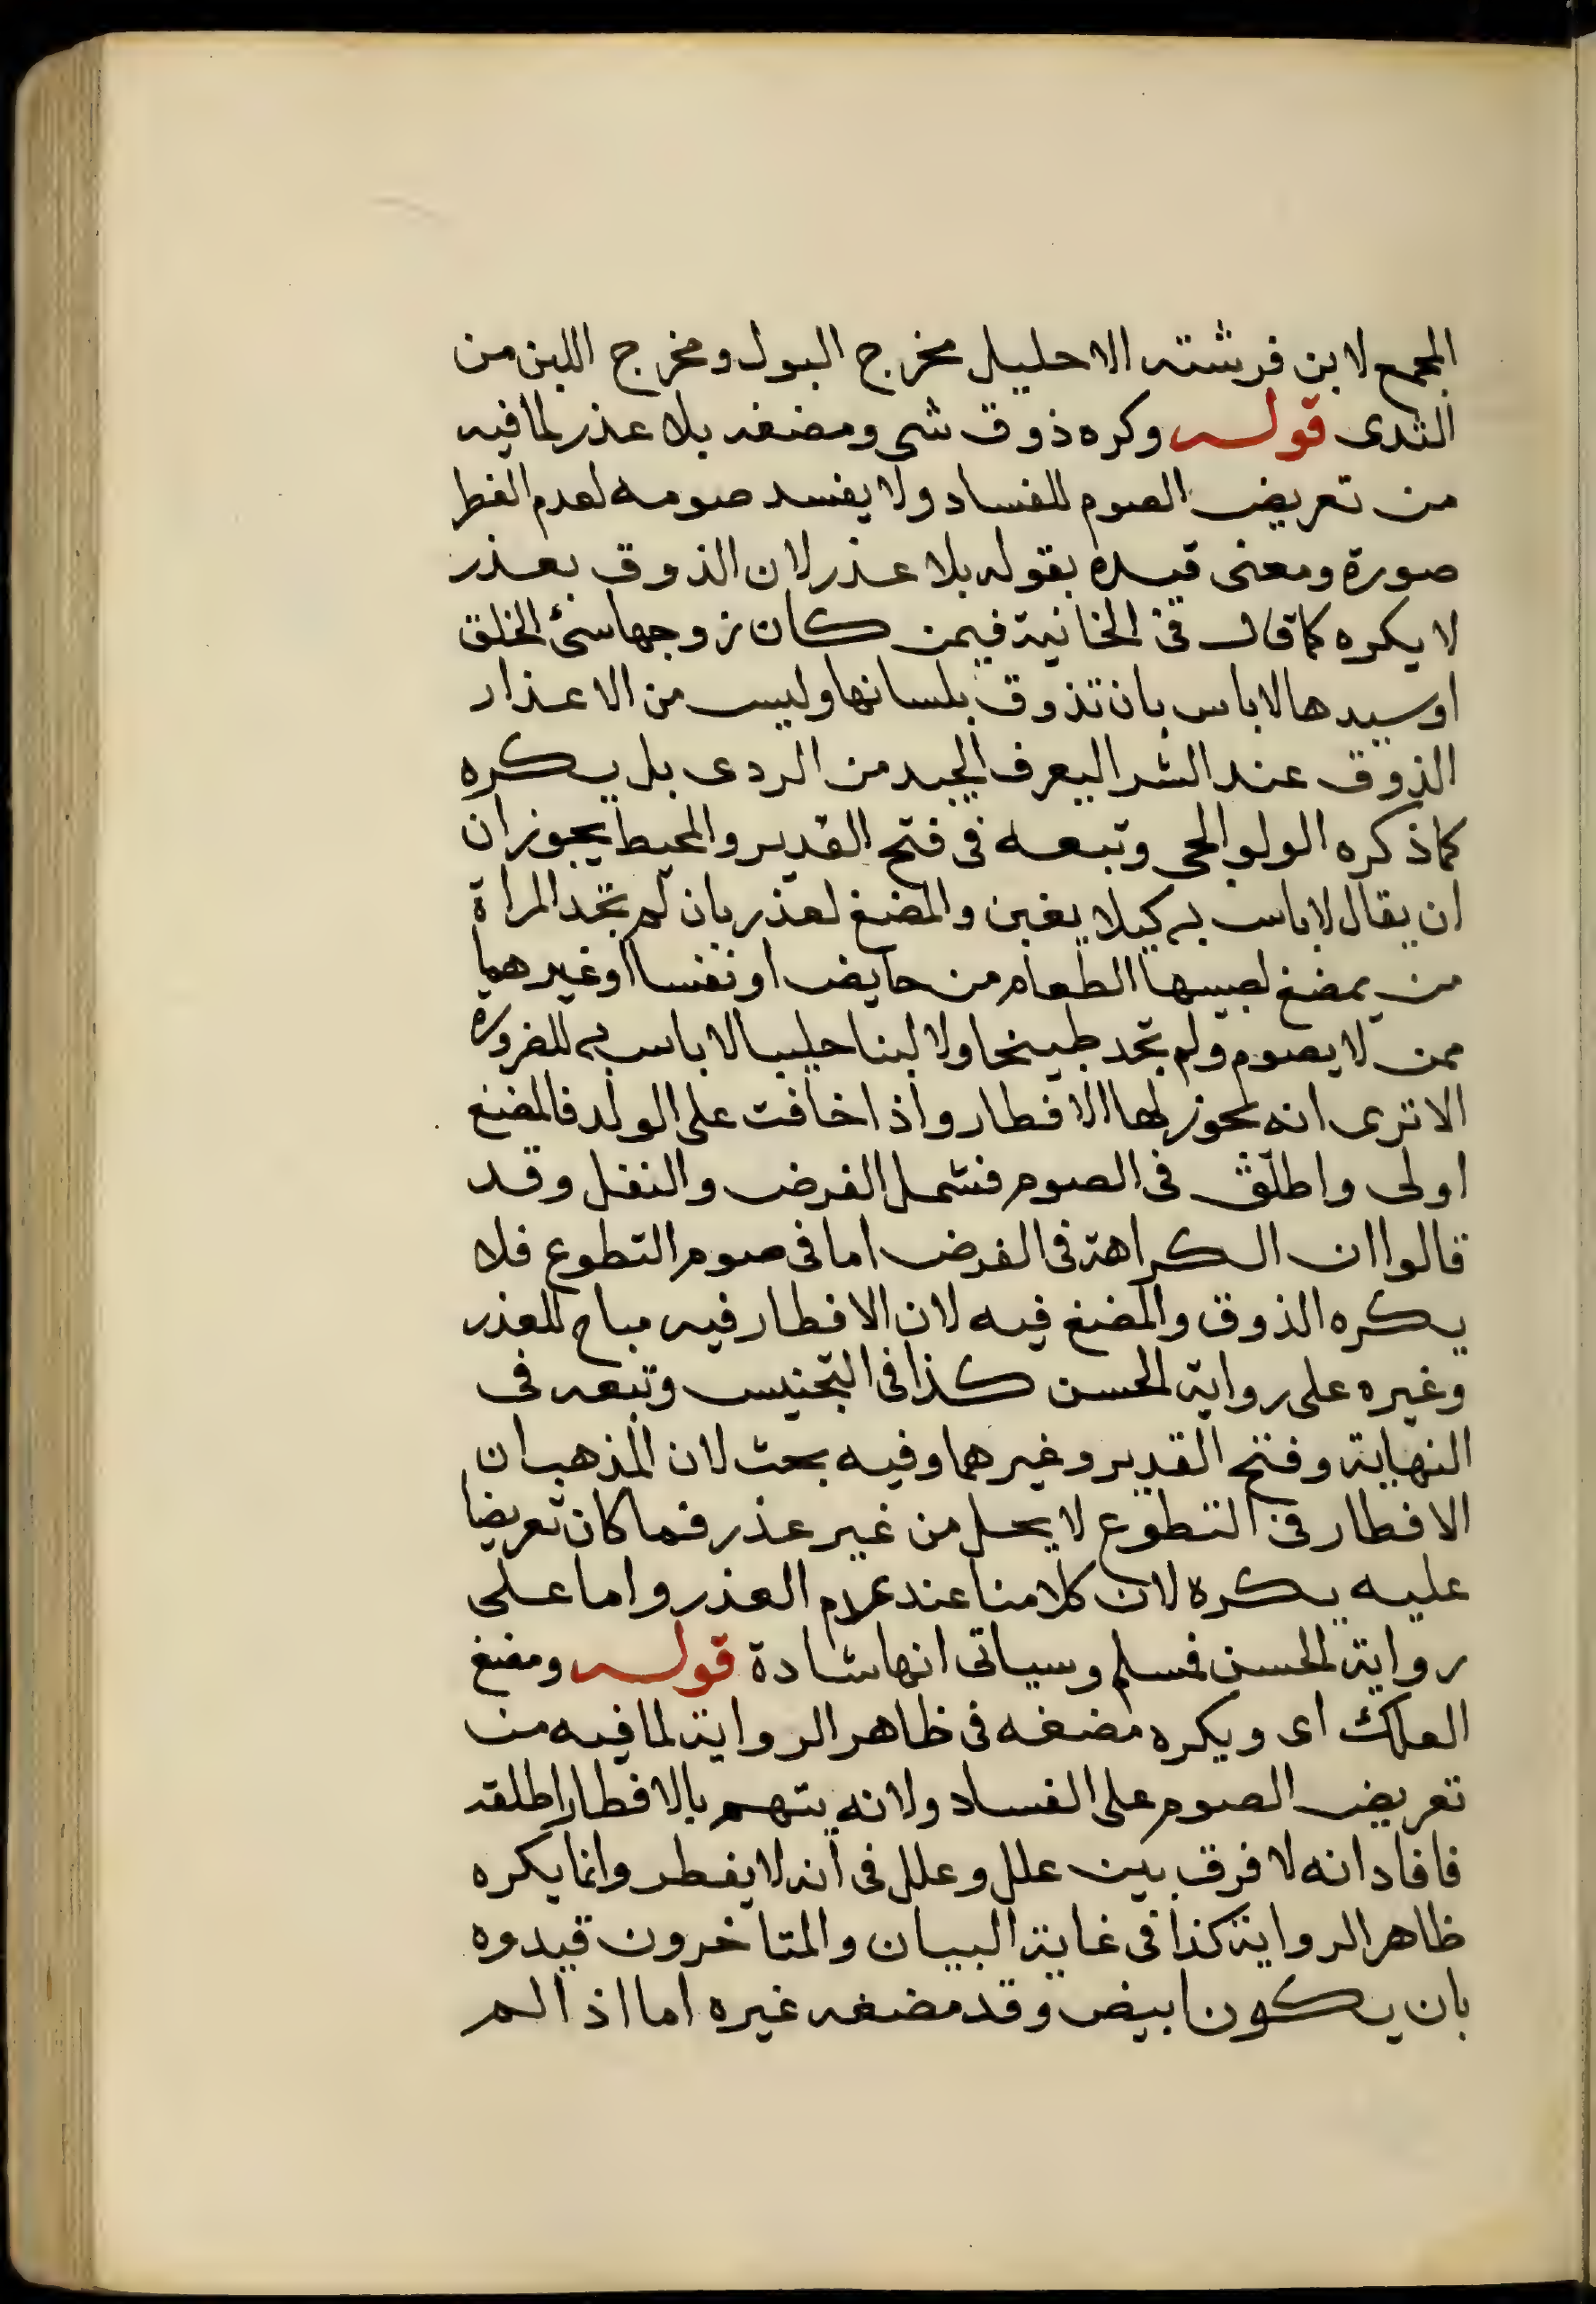 المجمع لابن فرشته الاحليل مخرج البول ومخرج اللبن من
الثدى قوله وكره ذوق شى ومضغه بلا عذر لما فيه
من تعريض الصوم للفساد ولا يفسد صومه لعدم الفطر
صورة ومعنى قيده بقوله بلا عذر لان الذوق بعذر
لا يكره كما قال فى الخانية فيمن كان زوجها سئ الخلق
او سيدها لا باس بان تذوق بلسانها وليس من الاعذار
الذوق عند الشر اليعرف الجيد من الردى بل يكره
كما ذكره الولوالجى وتبعه فى فتح القدير والمحيط يجوز ان
ان يقال لا باس به كيلا يغبن والمضغ لعذر بان لم تجد المراة
من يمضغ لصبيها الطعام من حايض او نفسا او غيرهما
ممن لا يصوم ولم تجد طبيخا ولا لبنا حليبا لا باس به للضرورة
الا ترى انه يجوز لها الافطار واذا خافت على الولد فالمضغ
اولى واطلق فى الصوم فشمل الفرض والنفل وقد
قالوا ان الكراهة فى الفرض اما فى صوم التطوع فلا
يكره الذوق والمضغ فيه لان الافطار فيه مباح للعذر
وغيره على رواية الحسن كذا فى التجنيس وتبعه فى
النهاية وفتح القدير وغيرهما وفيه بحث لان المذهب ان
الافطار فى التطوع لا يحل من غير عذر فما كان تعريضا
عليه يكره لان كلامنا عند عدم العذر واما على
رواية الحسن فمسلم وسياتى انها شادة قوله ومضغ
العلك اى ويكره مضغه فى ظاهر الرواية لما فيه من
تعريض الصوم على الفساد ولانه يتهم بالافطار اطلقه
فافاد انه لا فرق بين علك وعلك فى انه لا يفطر وانما يكره
ظاهر الرواية كذا فى غاية البيان والمتاخرون قيدوه
بان يكون ابيض وقد مضغه غيره اما اذا لم